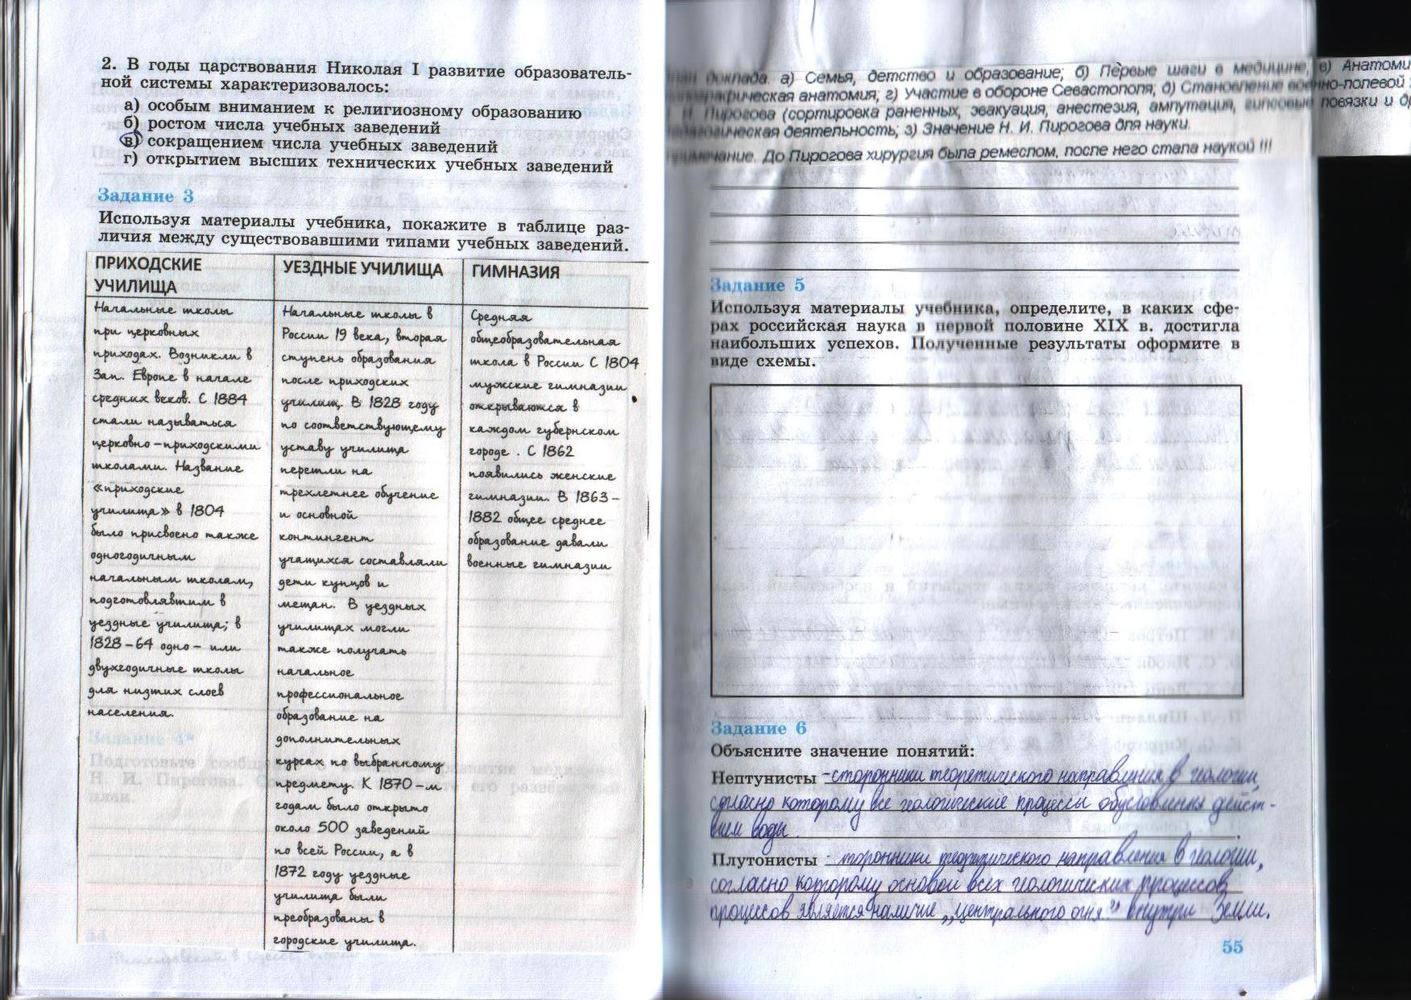 2. В годы царствования Николая I развитие образователь-
ной системы характеризовалось:
а) особым вниманием к религиозному образованию
б) ростом числа учебных заведений
в) сокращением числа учебных заведений
г) открытием высших технических учебных заведений
Задание 3
Используя материалы учебника, покажите в таблице раз-
личия между существовавшими типами учебных заведений.
ПРИХОДСКИЕ
УЧИЛИЩА
Начальные школы
при церковных
приходах. Возникли в
Зап. Европе в начале
средних веков. С 1884
стали называться
церковно-приходскими
школами. Название
«приходские
училища» в 1804
было присвоено также
одногодичным
начальным школам,
подготовлявшим в
уездные училища; в
1828-64 одно- или
двухгодичные школы
для низших слоев
населения.
УЕЗДНЫЕ УЧИЛИЩА
Начальные школы в
России 19 века, вторая
ступень образования
после приходских
училищ. В 1828 году
по соответствующему
уставу училища
перешли на
трехлетнее обучение
и основной
контингент
учащихся составляли
дети купцов и
мещан. В уездных
училищах могли
также получать
начальное
профессиональное
образование на
дополнительных
курсах по выбранному
предмету. К 1870-м
годам было открыто
около 500 заведений
по всей России, а в
1872 году уездные
училища были
преобразованы в
городские училища.
ГИМНАЗИЯ
Средняя
общеобразовательная
школа в России. С 1804
мужские гимназии
открываются в
каждом губернском
городе. С 1862
появились женские
гимназии. В 1863-
1882 общее среднее
образование давали
военные гимназии
Задание 4*
54
доклада. а) Семья, детство и образование; б) Первые шаги в медицине; в) Анатоми
анатомия; г) Участие в обороне Севастополя; д) Становление военно-полевой
Пирогова (сортировка раненных, эвакуация, анестезия, ампутация, гипсовые повязки и др
деятельность; з) Значение Н. И. Пирогова для науки.
Примечание. До Пирогова хирургия была ремеслом, после него стала наукой !!!
Задание 5
Используя материалы учебника, определите, в каких сфе-
рах российская наука в первой половине XIX в. достигла
наибольших успехов. Полученные результаты оформите в
виде схемы.
Задание 6
Объясните значение понятий:
Нептунисты - сторонники теоретического направления в геологии,
согласно которому все геологические процессы обусловлены дейст-
вием воды.
Плутонисты - торонники теоретического направления в геологии,
согласно которому основой всех геологических процессов
процессов является наличие „центрального огня" внутри Земли.
55